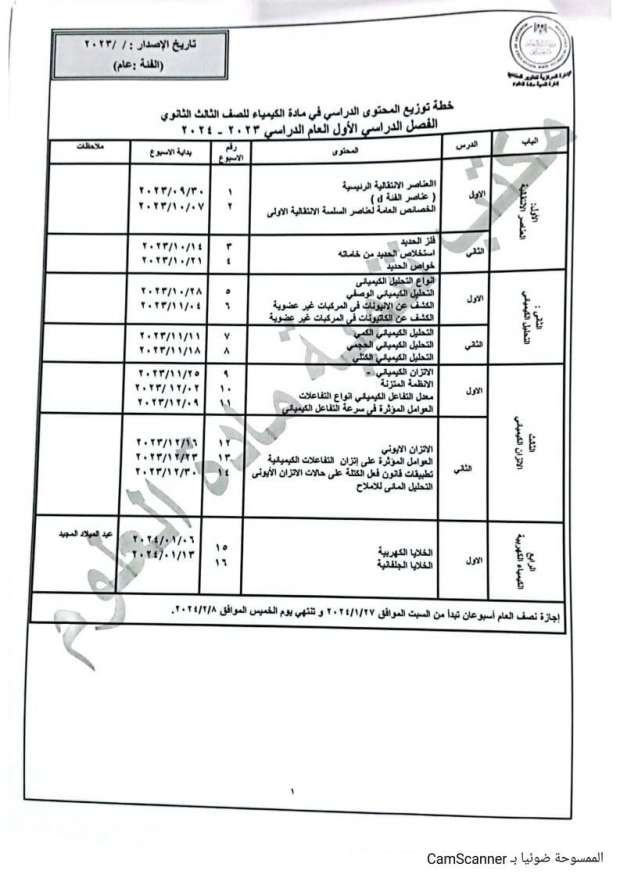 تاريخ الإصدار : / /٢٠٢٣
(الفئة :عام)
الإدارة المركزية لتطوير المناهج
إدارة تنمية مادة العلوم
خطة توزيع المحتوى الدراسي في مادة الكيمياء للصف الثالث الثانوي
الفصل الدراسي الأول العام الدراسي ٢٠٢٣ - ٢٠٢٤
الباب الدرس المحتوى رقم الاسبوع بداية الاسبوع ملاحظات
الأول: العناصر الانتقالية
الاول
العناصر الانتقالية الرئيسية
( عناصر الفئة d )
الخصائص العامة لعناصر السلسة الانتقالية الاولى
١ ٢٠٢٣/٠٩/٣٠
٢ ٢٠٢٣/١٠/٠٧
الثاني
فلز الحديد
استخلاص الحديد من خاماته
خواص الحديد
٣ ٢٠٢٣/١٠/١٤
٤ ٢٠٢٣/١٠/٢١
الثاني : التحليل الكيميائي
الاول
انواع التحليل الكيميائى
التحليل الكيميائي الوصفي
الكشف عن الانيونات في المركبات غير عضوية
الكشف عن الكاتيونات في المركبات غير عضوية
٥ ٢٠٢٣/١٠/٢٨
٦ ٢٠٢٣/١١/٠٤
الثاني
التحليل الكيميائي الكمي
التحليل الكيميائي الحجمي
التحليل الكيميائي الكتلي
٧ ٢٠٢٣/١١/١١
٨ ٢٠٢٣/١١/١٨
الثالث الاتزان الكيميائي
الاول
الاتزان الكيميائي -
الانظمة المتزنة
معدل التفاعل الكيميائي انواع التفاعلات
العوامل المؤثرة في سرعة التفاعل الكيميائي
٩ ٢٠٢٣/١١/٢٥
١٠ ٢٠٢٣/ ١٢/٠٢
١١ ٢٠٢٣/١٢/٠٩
الثاني
الاتزان الايوني
العوامل المؤثرة على إتزان التفاعلات الكيميائية
تطبيقات قانون فعل الكتلة على حالات الاتزان الأيونى
التحليل المائى للاملاح
١٢ ٢٠٢٣/١٢/١٦
١٣ ٢٠٢٣/١٢/٢٣
١٤ ٢٠٢٣/١٢/٣٠
الرابع الكيمياء الكهربية
الاول
الخلايا الكهربية
الخلايا الجلفانية
١٥ ٢٠٢٤/٠١/٠٦ عيد الميلاد المجيد
١٦ ٢٠٢٤/٠١/١٣
إجازة نصف العام أسبوعان تبدأ من السبت الموافق ٢٠٢٤/١/٢٧ و تنتهي يوم الخميس الموافق ٢٠٢٤/٢/٨.
مكتب تنمية مادة العلوم
١
الممسوحة ضوئيا بـ CamScanner